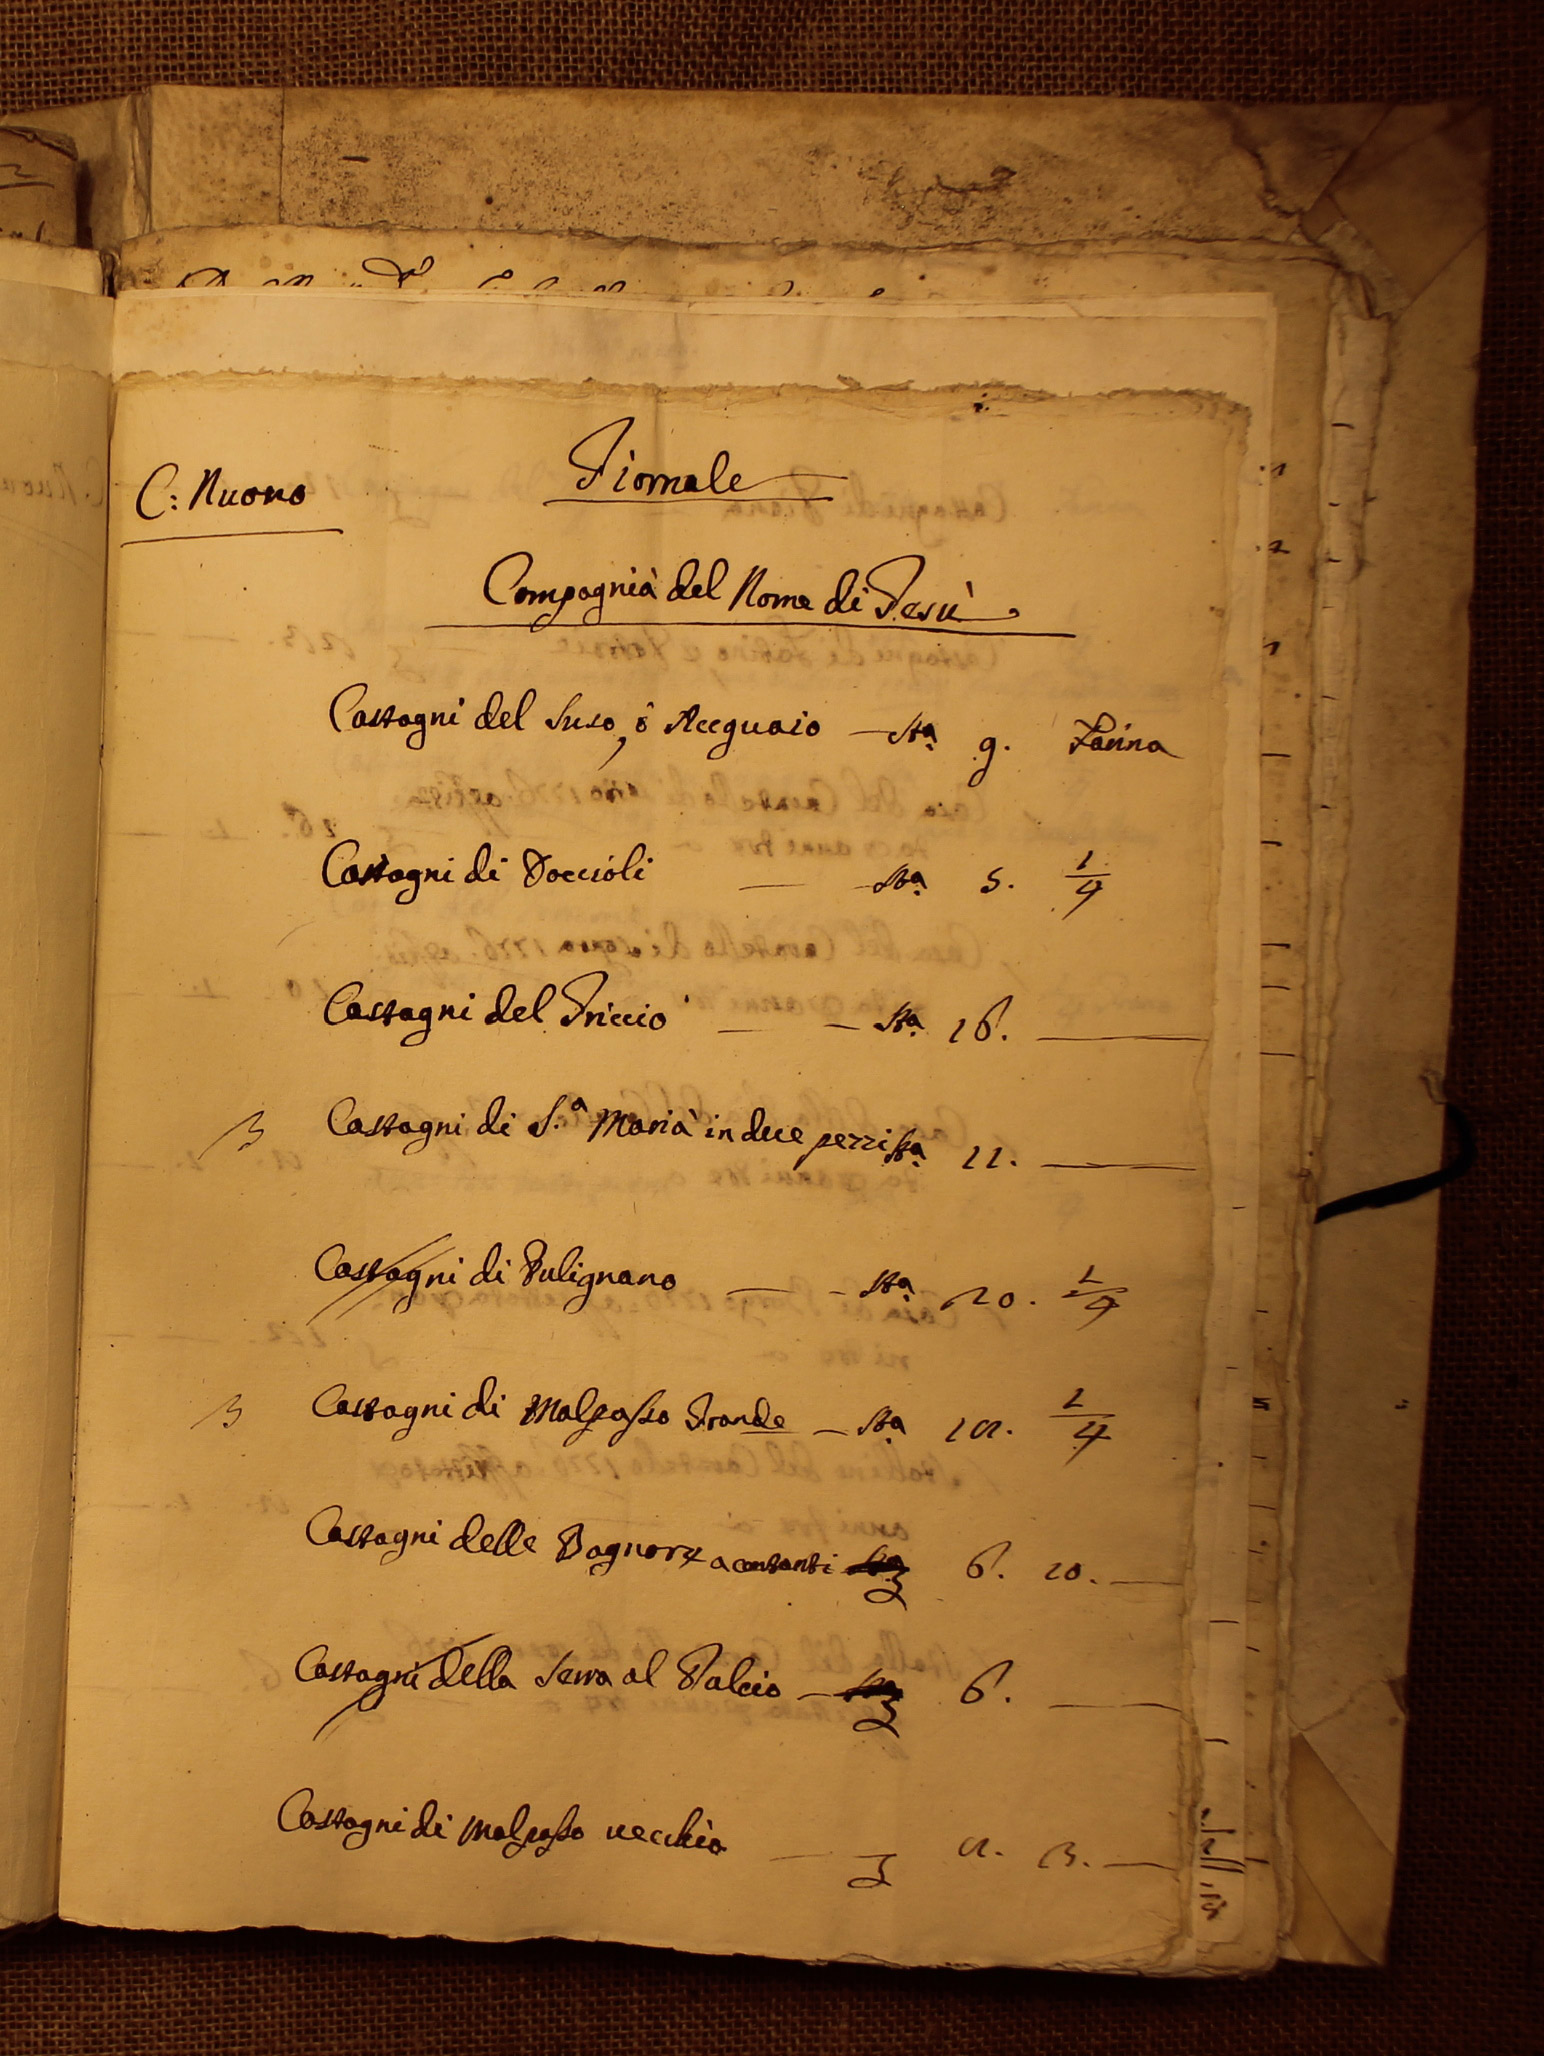 C: Nuovo
Giornale
Compagnià del Nome di Gesù
Castagni del Suso, ò Acquaio — Sta. 9. Farina
Castagni di Doccioli — Sta. 5. 1/4
Castagni del Griccio — Sta. 16. —
3 Castagni di S.a Marià in due pezzi Sta. 11. —
Castagni di Pulignano — Sta. 20. 1/4
3 Castagni di Malpasso Grande — Sta. 12. 1/4
Castagni delle a contanti 6. 10. —
Castagni della Serra al Palcio — 6. —
Castagni di Malpasso vecchio — 2. 3. —